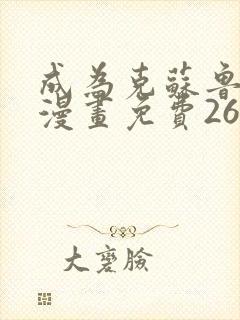 成為克蘇魯
漫畫免費26
大褒臉